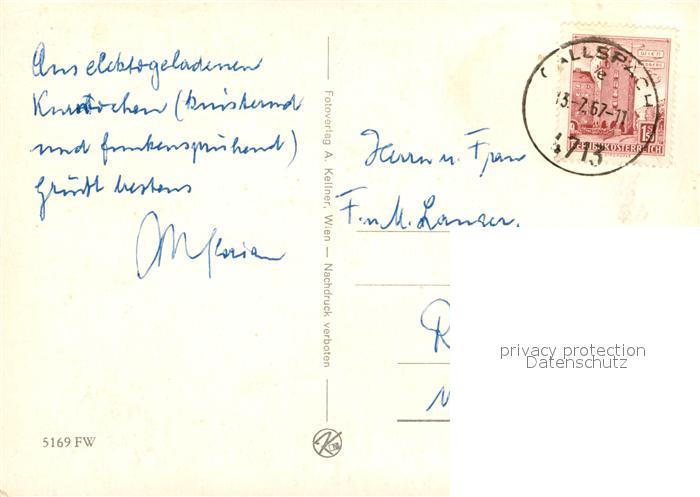 Aus elektogeladenen
Kurwochen (knisternd
und funkensprühend)
Grüßt bestens
Florian
5169 FW
Fotoverlag A. Kellner, Wien — Nachdruck verboten
GALLSPACH
13.-7.67-11
4713
WIEN
1S
REPUBLIK ÖSTERREICH
Herrn u. Frau
F. u. M.
privacy protection
Datenschutz